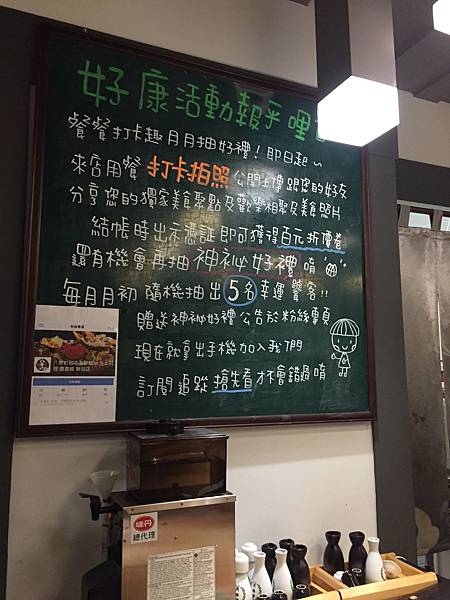 好康活動報乎哩
餐餐打卡趣月月抽好禮！即日起～
來店用餐 打卡拍照 公開上傳 跟您的好友
分享您的獨家美食聚點及歡樂相聚及美食照片
結帳時出示憑証即可獲得百元折價卷
還有機會再抽神祕好禮唷
每月月初 隨機抽出5名幸運饕客!!
贈送神祕好禮公告於粉絲專頁
現在就拿出手機加入我們
訂閱追蹤 搶先看才不會錯過唷
味丹
總代理